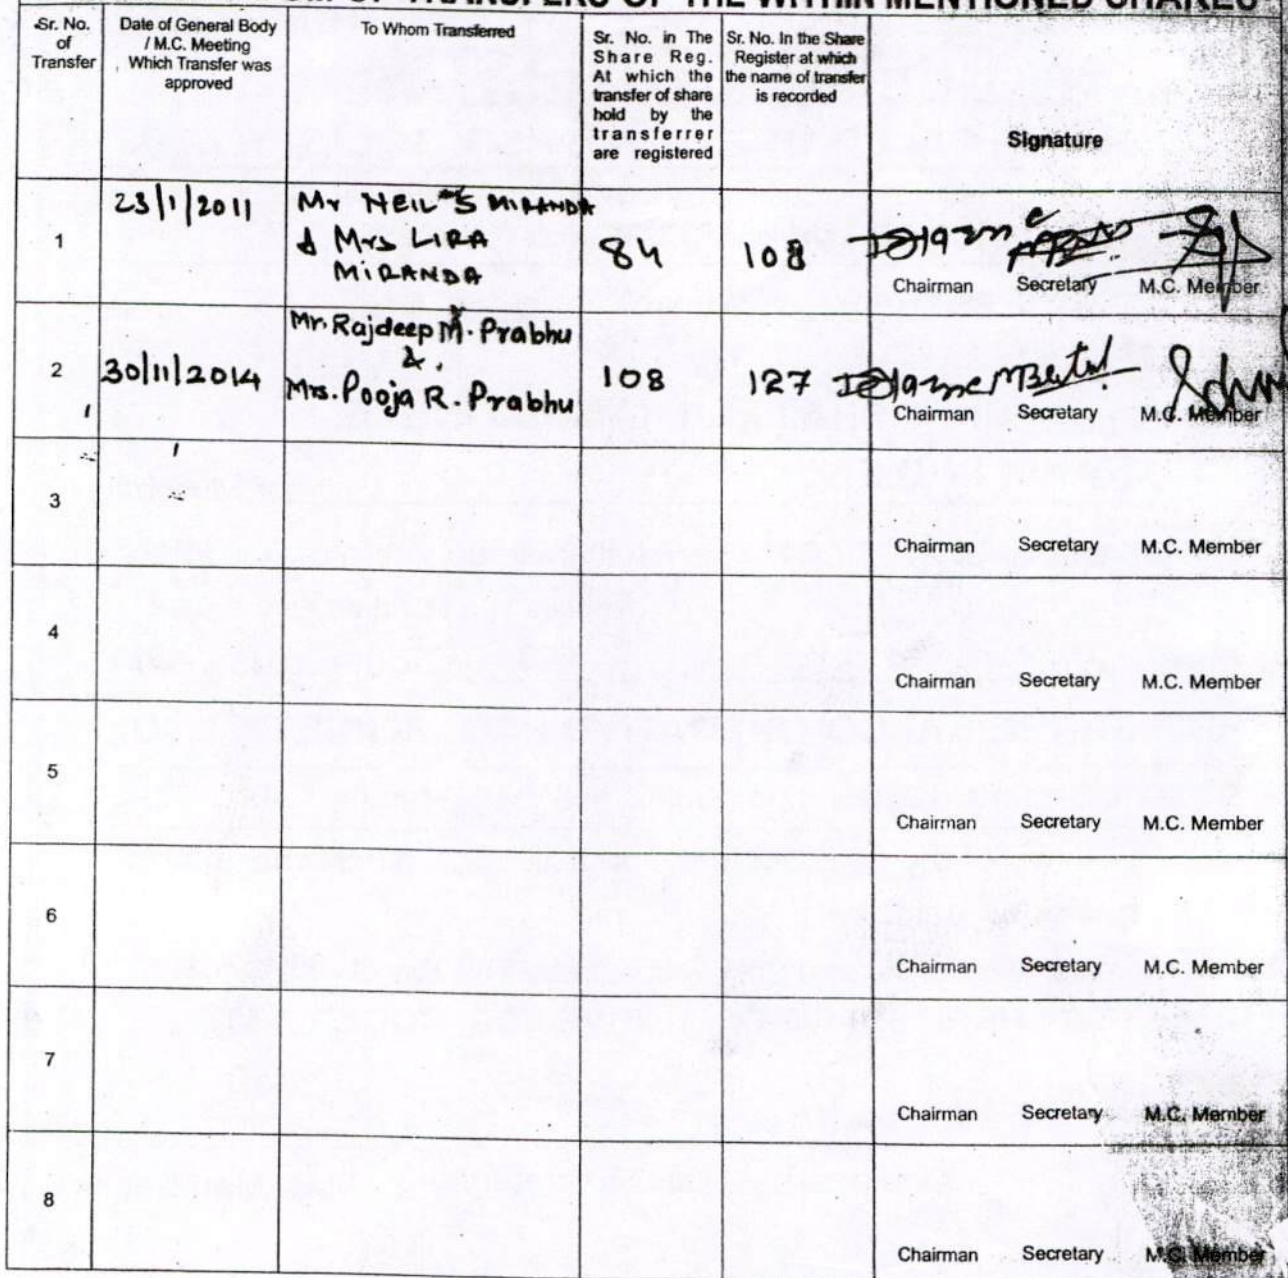 OF TRANSFERS OF THE WITHIN MENTIONED SHARES
Sr. No.
of
Transfer
Date of General Body
/ M.C. Meeting
Which Transfer was
approved
To Whom Transferred
Sr. No. in The
Share Reg.
At which the
transfer of share
hold by the
transferrer
are registered
Sr. No. In the Share
Register at which
the name of transfer
is recorded
Signature
1
23/1/2011
Mr NEIL S MIRANDA
& Mrs LIRA
MIRANDA
84
108
Chairman Secretary M.C. Member
2
30/11/2014
Mr. Rajdeep M. Prabhu
&
Mrs. Pooja R. Prabhu
108
127
Chairman Secretary M.C. Member
3
Chairman Secretary M.C. Member
4
Chairman Secretary M.C. Member
5
Chairman Secretary M.C. Member
6
Chairman Secretary M.C. Member
7
Chairman Secretary M.C. Member
8
Chairman Secretary M.C. Member